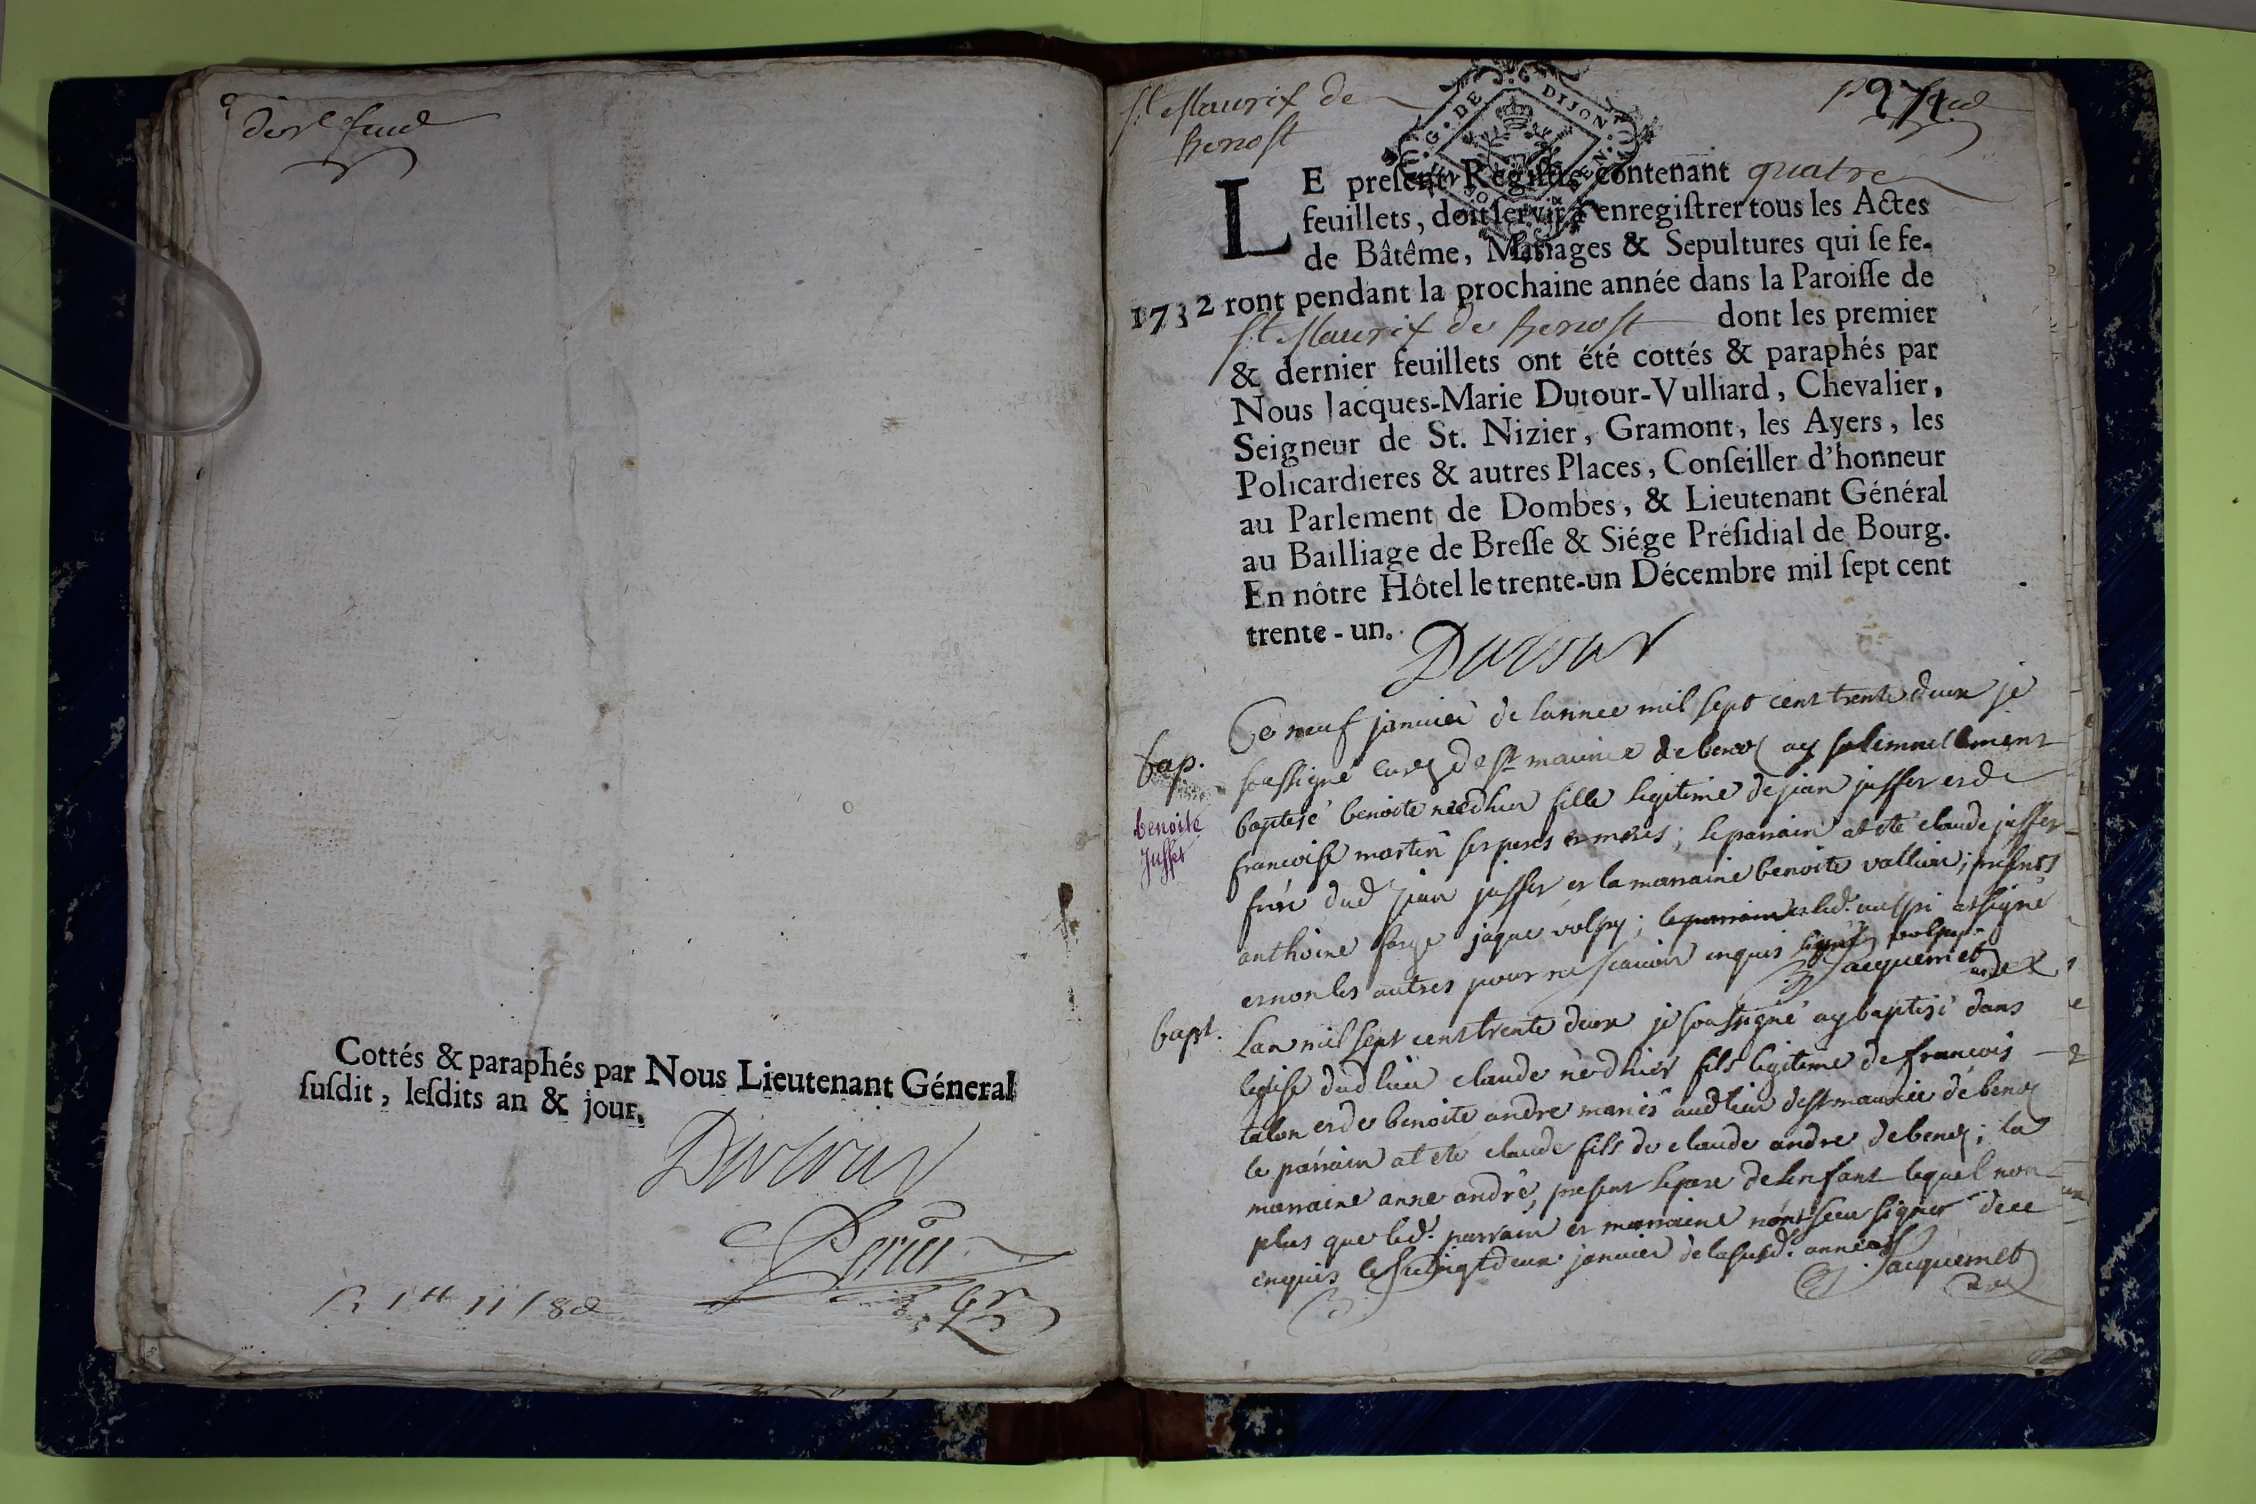 der.r feuil
Cottés & paraphés par Nous Lieutenant Géneral
ſuſdit, leſdits an & jour.
Dutour
Perier
St Maurix de
Benost
271.
G. DE DIJON
LE preſent Regiſtre contenant quatre
feuillets, doit ſervir à enregiſtrer tous les Actes
de Bâtême, Mariages & Sepultures qui ſe fe-
1732 ront pendant la prochaine année dans la Paroiſſe de
St Maurix de Benost dont les premier
& dernier feuillets ont été cottés & paraphés par
Nous Jacques-Marie Dutour-Vulliard, Chevalier,
Seigneur de St. Nizier, Gramont, les Ayers, les
Policardieres & autres Places, Conſeiller d'honneur
au Parlement de Dombes, & Lieutenant Général
au Bailliage de Breſſe & Siége Préſidial de Bourg.
En nôtre Hôtel le trente-un Décembre mil ſept cent
trente-un.
Dutour
bap.
benoite
Juffet
Ce neuf janvier de lannee mil sept cent trente deux je
soussigné curé de st maurice de benoz ay solemnellement
baptisé benoite née dhier fille legitime de jean juffet et de
francoise martin ses peres et meres; le parrain at eté claude juffet
frere dud jean juffet et la marraine benoite vallier; presents
anthoine forge jaque volpy; led. volpi at signé
et non les autres pour ne scavoir enquis volpy
Jacquemet curé
bapt.
Lan mil sept cent trente deux je soussigné ay baptisé dans
leglise dud lieu claude né dhier fils legitime de francois
talon et de benoite andre mariés aud lieu de st maurice de benoz
le parrain at eté claude fils de claude andre de benoz; la
marraine anne andre, present le pere de lenfant lequel non
plus que led. parrain et marraine nont sceu signer de ce
enquis le vingt deux janvier de la susd. année
Jacquemet
curé